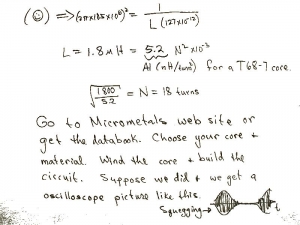 (☺) ⟹ (2π×10.5×10⁶)² = 1 / L(127×10⁻¹²)
L = 1.8 μH = 5.2 N² ×10⁻³
Al (nH/turn²) for a T68-7 core.
√(1800/5.2) = N = 18 turns
Go to Micrometals web site or
get the databook. Choose your core +
material. Wind the core + build the
circuit. Suppose we did + we get a
oscilloscope picture like this.
Squegging → t